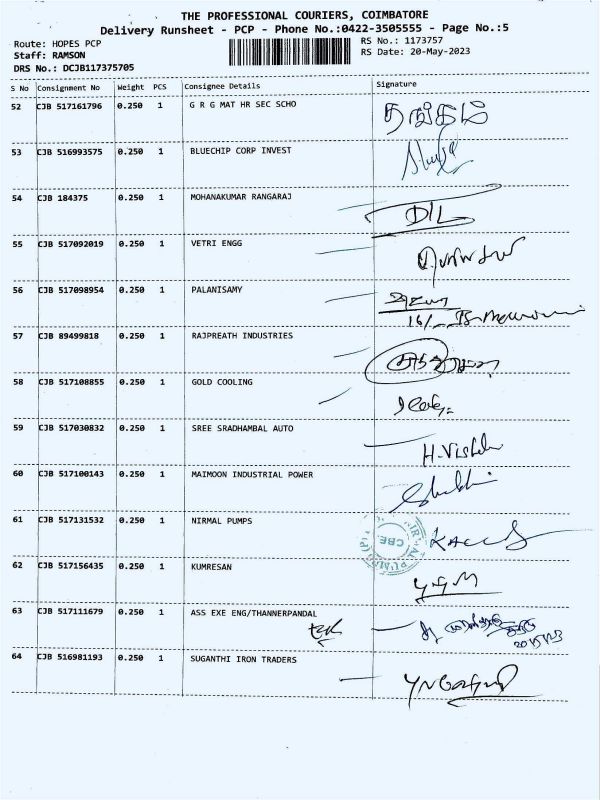 THE PROFESSIONAL COURIERS, COIMBATORE
Delivery Runsheet - PCP - Phone No.:0422-3505555 - Page No.:5
Route: HOPES PCP
Staff: RAMSON
DRS No.: DCJB117375705
RS No.: 1173757
RS Date: 20-May-2023
S No Consignment No Weight PCS Consignee Details Signature
52 CJB 517161796 0.250 1 G R G MAT HR SEC SCHO தங்கம்
53 CJB 516993575 0.250 1 BLUECHIP CORP INVEST
54 CJB 184375 0.250 1 MOHANAKUMAR RANGARAJ
55 CJB 517092019 0.250 1 VETRI ENGG
56 CJB 517098954 0.250 1 PALANISAMY
57 CJB 89499818 0.250 1 RAJPREATH INDUSTRIES
58 CJB 517108855 0.250 1 GOLD COOLING
59 CJB 517030832 0.250 1 SREE SRADHAMBAL AUTO
60 CJB 517100143 0.250 1 MAIMOON INDUSTRIAL POWER
61 CJB 517131532 0.250 1 NIRMAL PUMPS CBE.
62 CJB 517156435 0.250 1 KUMRESAN
63 CJB 517111679 0.250 1 ASS EXE ENG/THANNERPANDAL
64 CJB 516981193 0.250 1 SUGANTHI IRON TRADERS